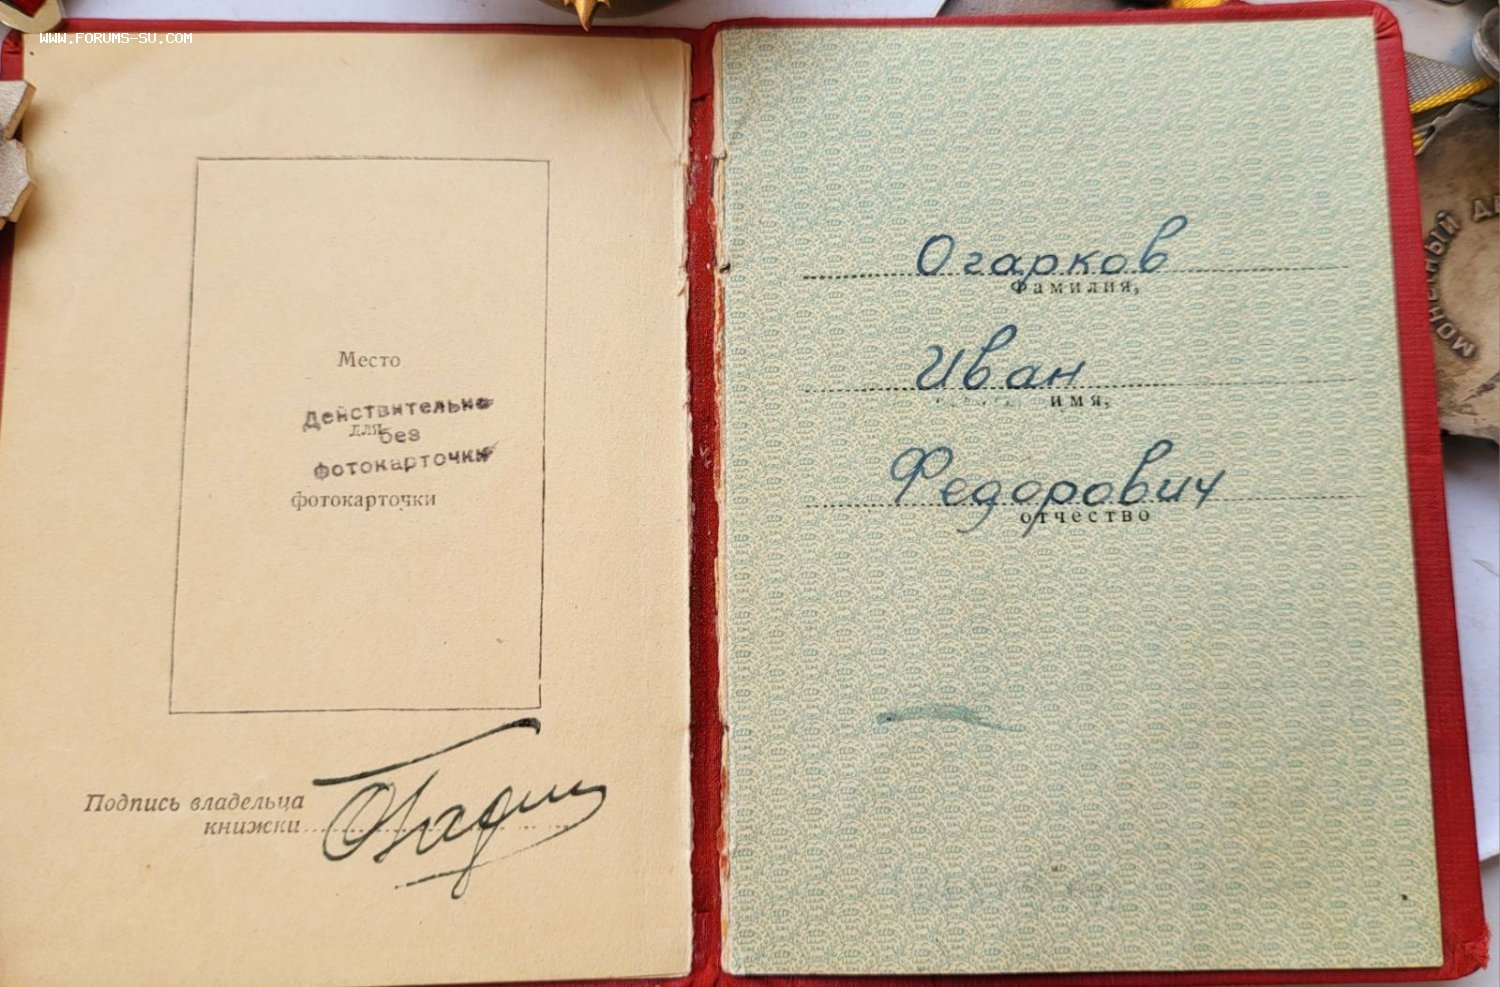 www.FORUMS-SU.COM
Место
Действительно
для без
фотокарточки
фотокарточки
Подпись владельца
книжки
Огарков
Фамилия,
Иван
имя,
Федорович
отчество